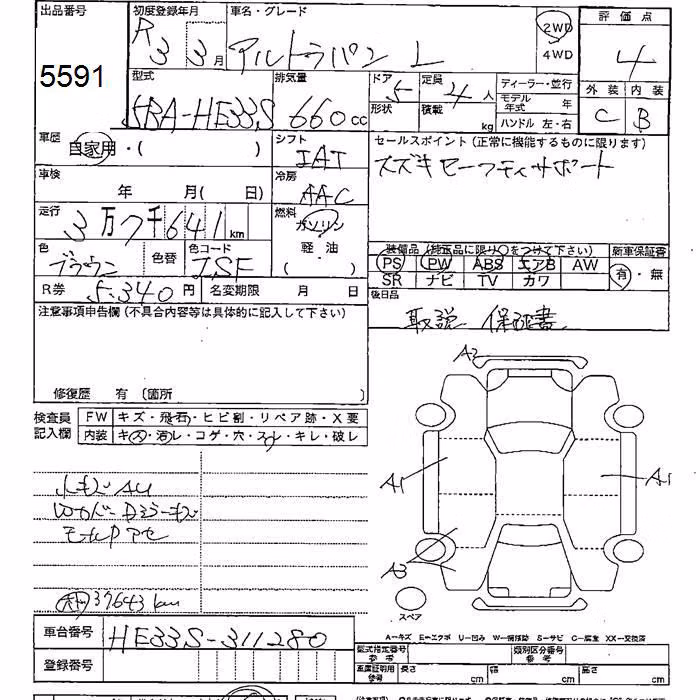 出品番号
5591
初度登録年月
R3 3月
車名・グレード
アルトラパン L
2WD
4WD
評価点
4
外装 内装
C B
型式
5BA-HE33S
排気量
660cc
ドア 5
形状
定員 4人
積載 kg
ディーラー・並行
モデル年式 年
ハンドル 左・右
車歴
自家用・( )
シフト
IAT
セールスポイント (正常に機能するものに限ります)
スズキセーフティサポート
車検
年 月( 日)
冷房
AAC
走行
3万7千641km
燃料
ガソリン
軽・油
( )
色
ブラウン
色替
色コード
装備品 (純正品に限り○をつけて下さい)
PS PW ABS エアB AW
SR ナビ TV カワ
新車保証書
有・無
R券 5.340円
名変期限 月 日
後日品
取説 保証書
注意事項申告欄 (不具合内容等は具体的に記入して下さい)
修復歴 有 (箇所 )
検査員記入欄
FW キズ・飛石・ヒビ割・リペア跡・X要
内装 キズ・汚レ・コゲ・穴・スレ・キレ・破レ
小キズAU
37643km
A2
A1
A1
A3
スペア
A-キズ E-エクボ U-凹み W-補修跡 S-サビ C-腐食 XX-交換済
車台番号
HE33S-311280
登録番号
型式指定番号
参考
類別区分番号
参考
車庫証明用
参考
長さ cm
幅 cm
高さ cm